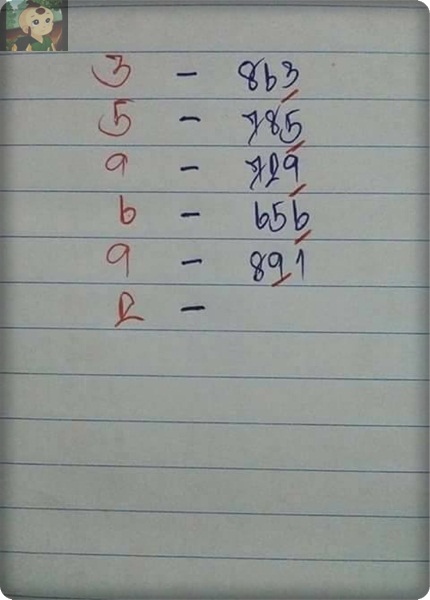 3 - 863
5 - 785
9 - 729
6 - 656
9 - 891
2 -